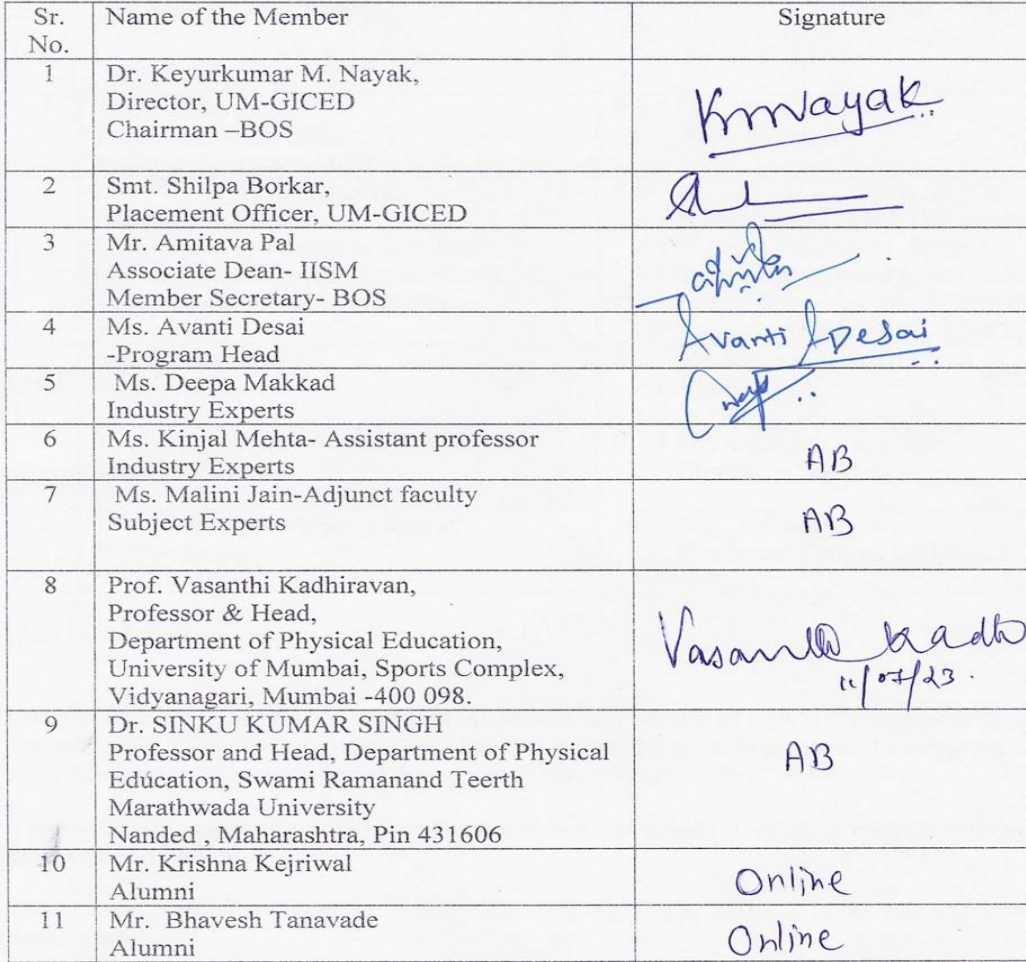 Sr. No.
Name of the Member
Signature
1
Dr. Keyurkumar M. Nayak,
Director, UM-GICED
Chairman –BOS
KMNayak
2
Smt. Shilpa Borkar,
Placement Officer, UM-GICED
3
Mr. Amitava Pal
Associate Dean- IISM
Member Secretary- BOS
4
Ms. Avanti Desai
-Program Head
Avanti Desai
5
Ms. Deepa Makkad
Industry Experts
6
Ms. Kinjal Mehta- Assistant professor
Industry Experts
AB
7
Ms. Malini Jain-Adjunct faculty
Subject Experts
AB
8
Prof. Vasanthi Kadhiravan,
Professor & Head,
Department of Physical Education,
University of Mumbai, Sports Complex,
Vidyanagari, Mumbai -400 098.
Vasanthi Kadhi
11/07/23.
9
Dr. SINKU KUMAR SINGH
Professor and Head, Department of Physical
Education, Swami Ramanand Teerth
Marathwada University
Nanded , Maharashtra, Pin 431606
AB
10
Mr. Krishna Kejriwal
Alumni
Online
11
Mr. Bhavesh Tanavade
Alumni
Online